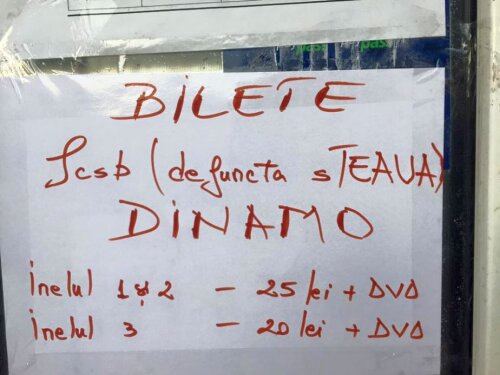 pass pass
BILETE
fcsb (defuncta sTEAUA)
DINAMO
Inelul 1 și 2 - 25 lei + DVD
Inelul 3 - 20 lei + DVD